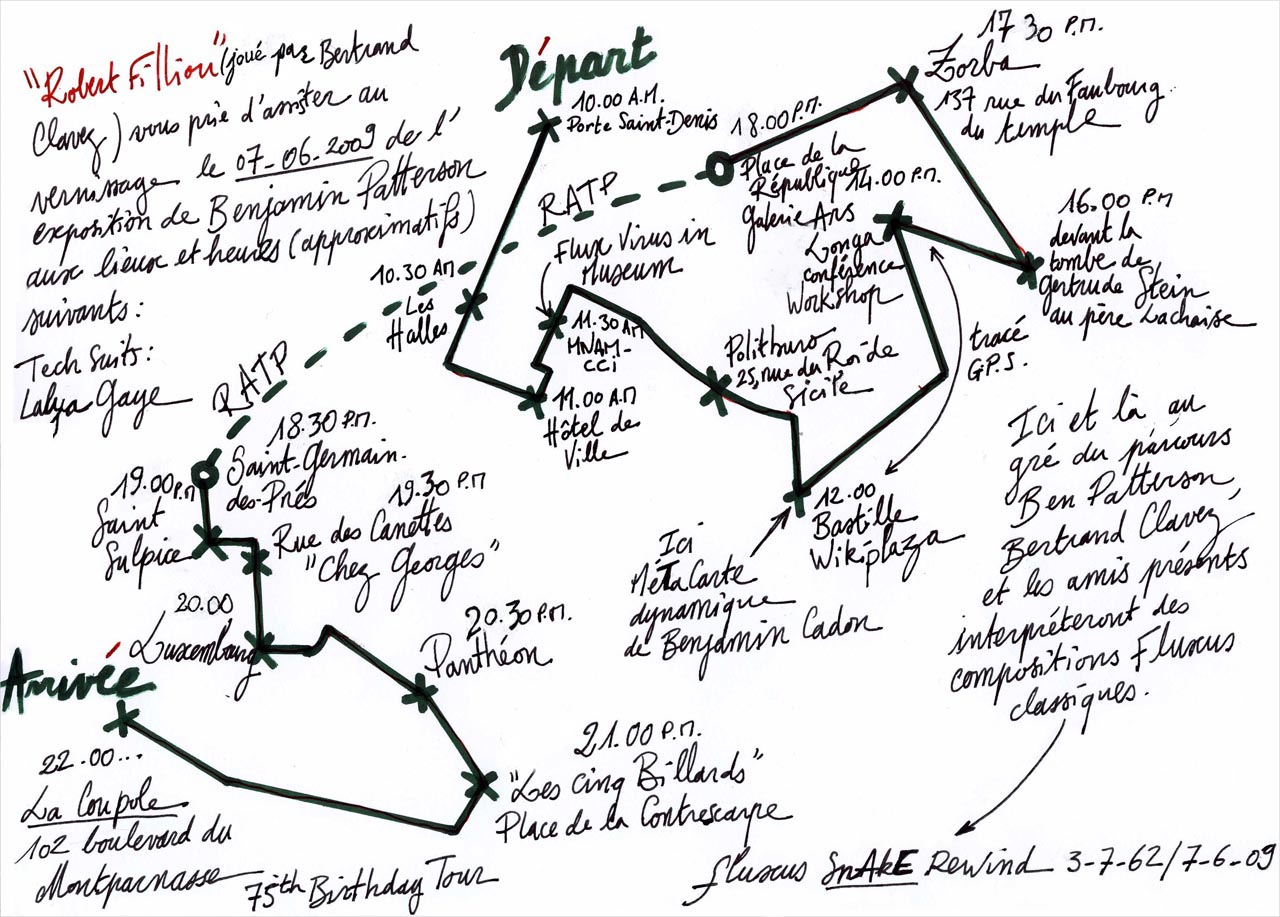 "Robert Filliou" (joué par Bertrand
Clavez) vous prie d'assister au
vernissage le 07-06-2009 de l'
exposition de Benjamin Patterson
aux lieux et heures (approximatifs)
suivants :
Tech Suits :
Lalya Gaye
Départ
10.00 A.M.
Porte Saint-Denis
10.30 AM
Les
Halles
11.00 A.M
Hôtel de
Ville
Flux Virus in
Museum
11.30 AM
MNAM-
CCi
Politburo
25, rue du Roi de
Sicile
12.00
Bastille
Wikiplaza
Ici
MétaCarte
dynamique
de Benjamin Cadon
tracé
G.P.S.
14.00 P.M.
Galerie Ars
Longa
conférence
Workshop
16.00 P.M
devant la
tombe de
Gertrude Stein
au père Lachaise
17 30 P.M.
Zorba
137 rue du Faubourg
du temple
18.00 P.M.
Place de la
République
RATP
RATP
18.30 P.M.
Saint-Germain-
des-Prés
19.00 P.M
Saint
Sulpice
19.30 P.M
Rue des Canettes
"Chez Georges"
20.00
Luxembourg
20.30 P.M.
Panthéon
21.00 P.M.
"Les cinq Billards"
Place de la Contrescarpe
Arrivée
22.00...
La Coupole
102 boulevard du
Montparnasse
75th Birthday Tour
Ici et là au
gré du parcours
Ben Patterson,
Bertrand Clavez,
et les amis présents
interpréteront des
compositions Fluxus
classiques.
Fluxus SnAkE Rewind 3-7-62/7-6-09